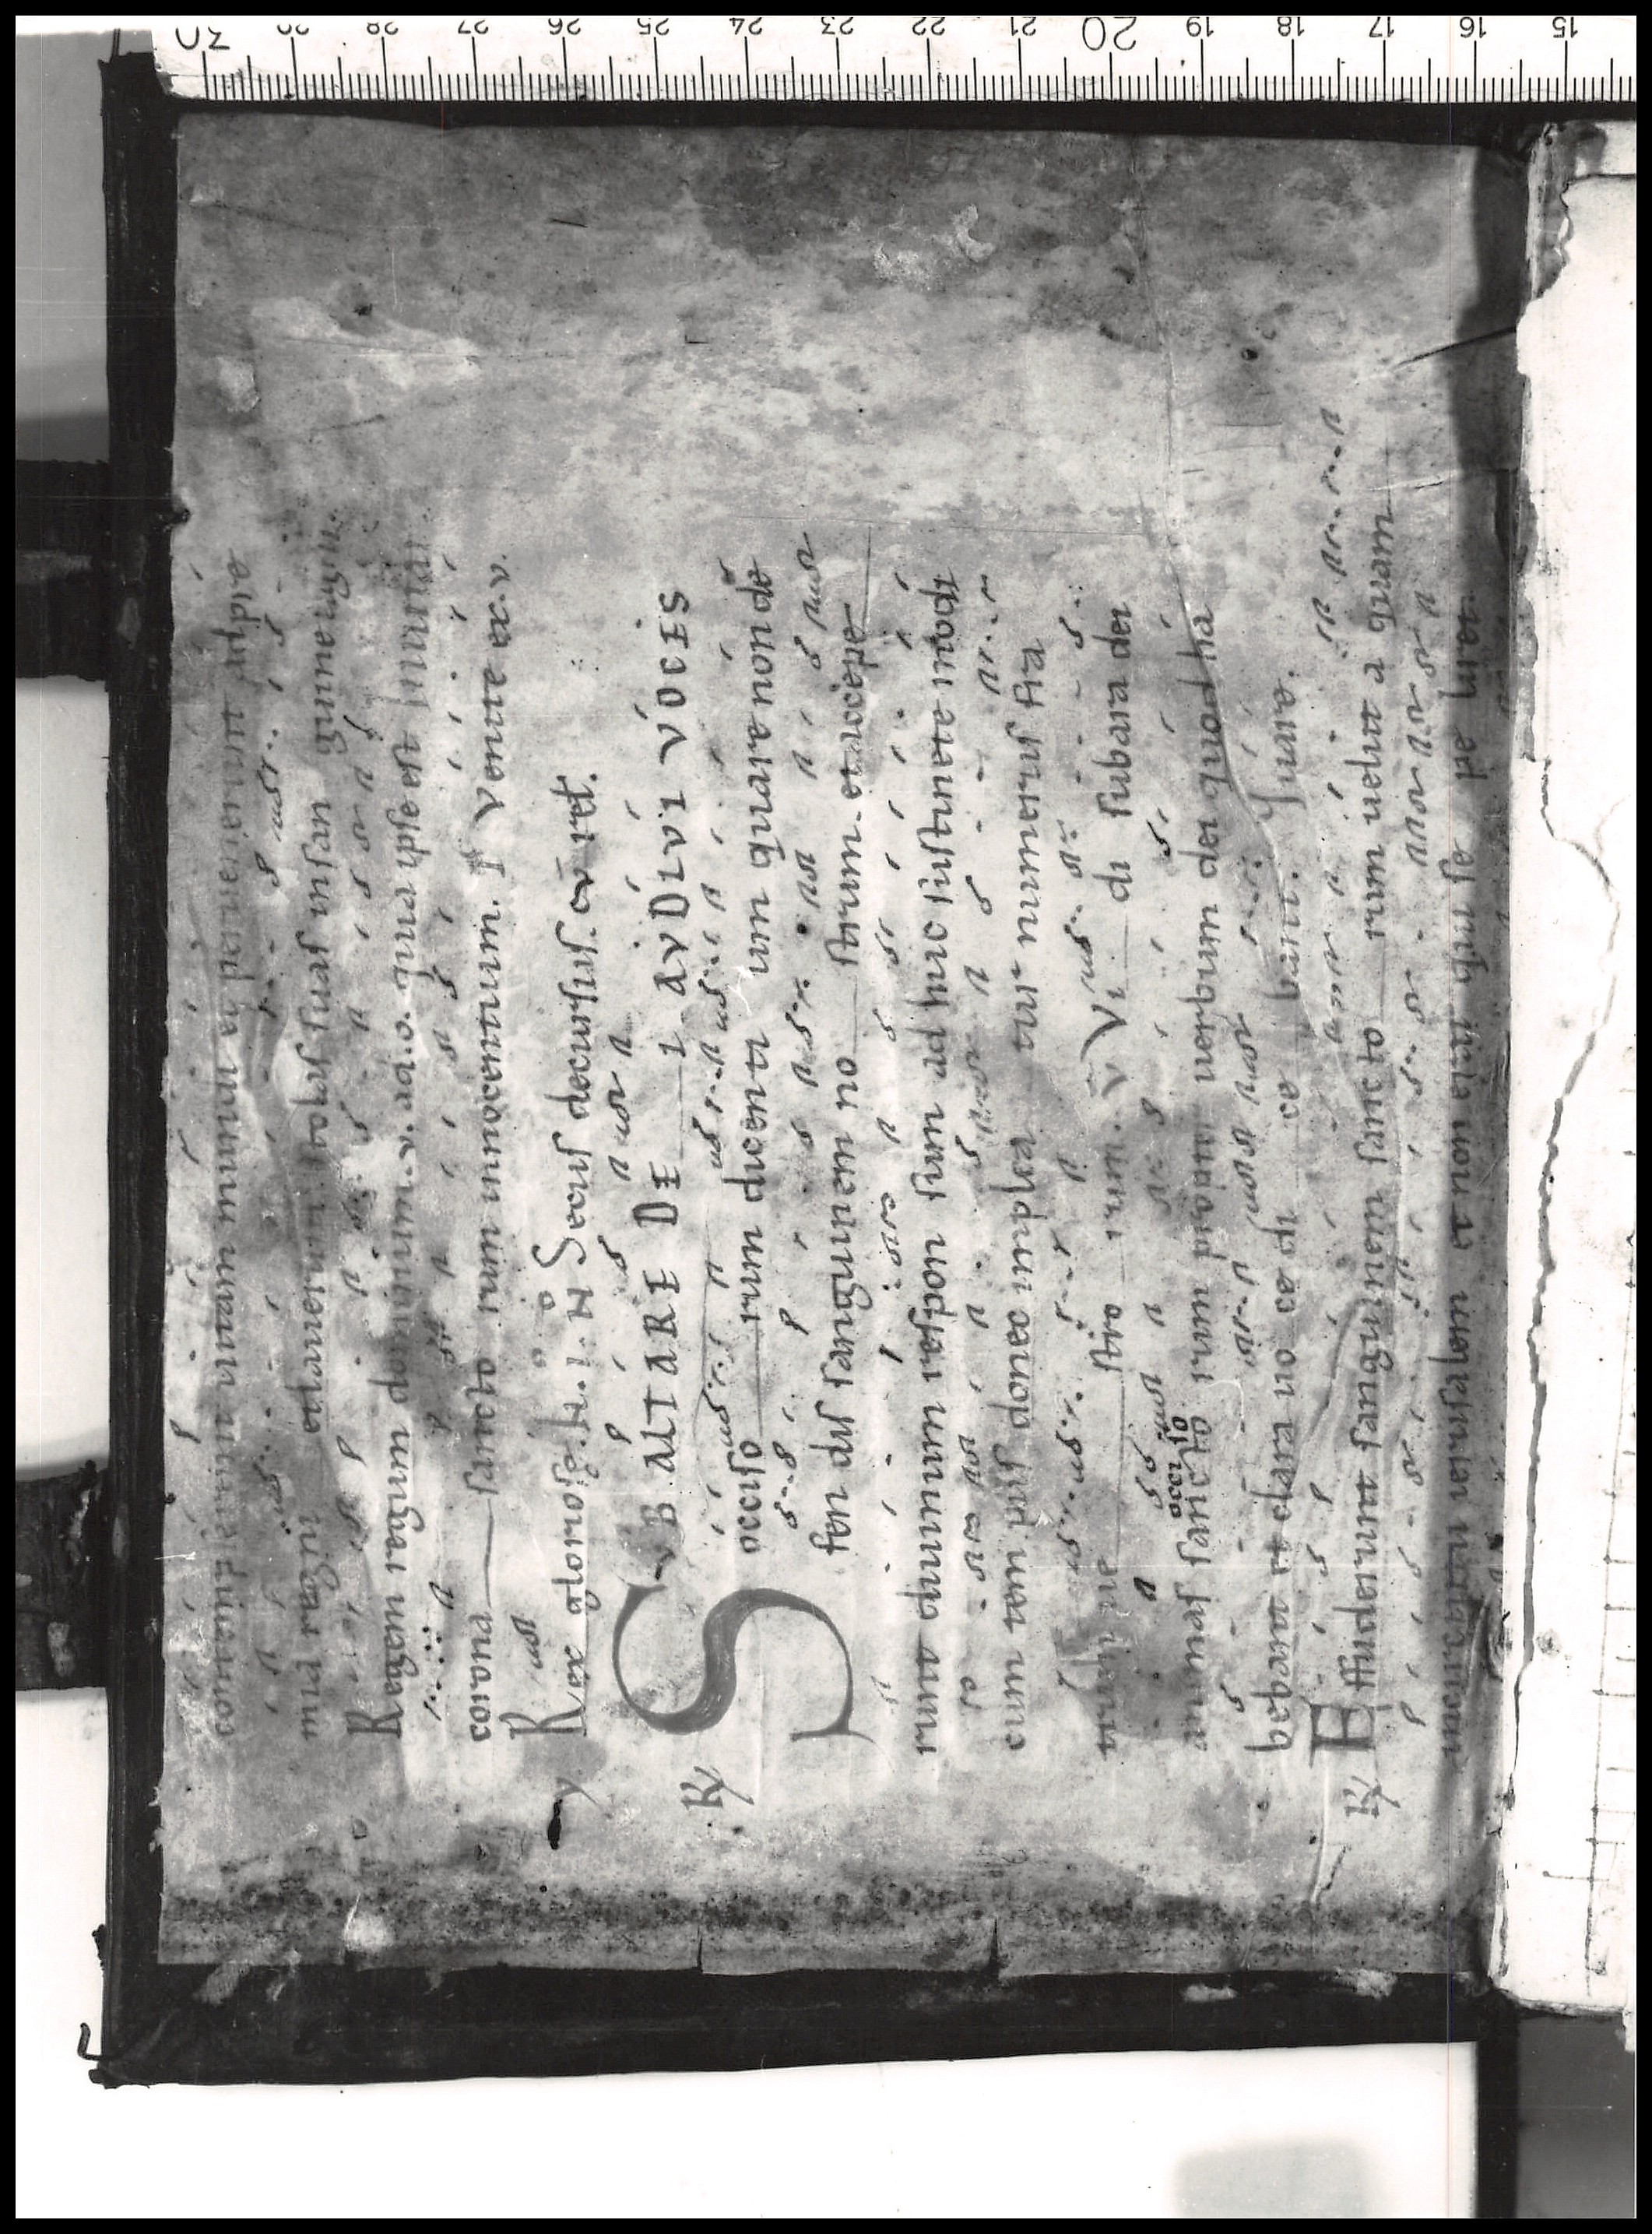 contempserunt uitam mundi et peruenerunt adpre
mia regni etlauerunt stolas suas insan guine agni.
Regem regum dominum. v. ad. o. quia ipse est
corona sancto rum innocentium. P Venite ex. v.
Rex gloriose. H. I. N Secus decursus. ev ret.
y
SVB ALTARE DE I AVDIVI VOCES
R/
occiso rum dicenti um quare non de
fen dis sanguinem no strum. et accepe
runt diuinum respon sum ad huc sustinete modi
cum tem pus donec implea tur numerus fra
trum ue stro rum. v Vi di subara dei
occi so
animas sancto rum propter uerbum dei quod ha
bebant et clara uo ce di ce bant. Quare.
R/ Effuderunt sanguinem sancto rum uelut a quam
incircuitu ierusalem et non erat qui se pe liret.
30 29 28 27 26 25 24 23 22 21 20 19 18 17 16 15